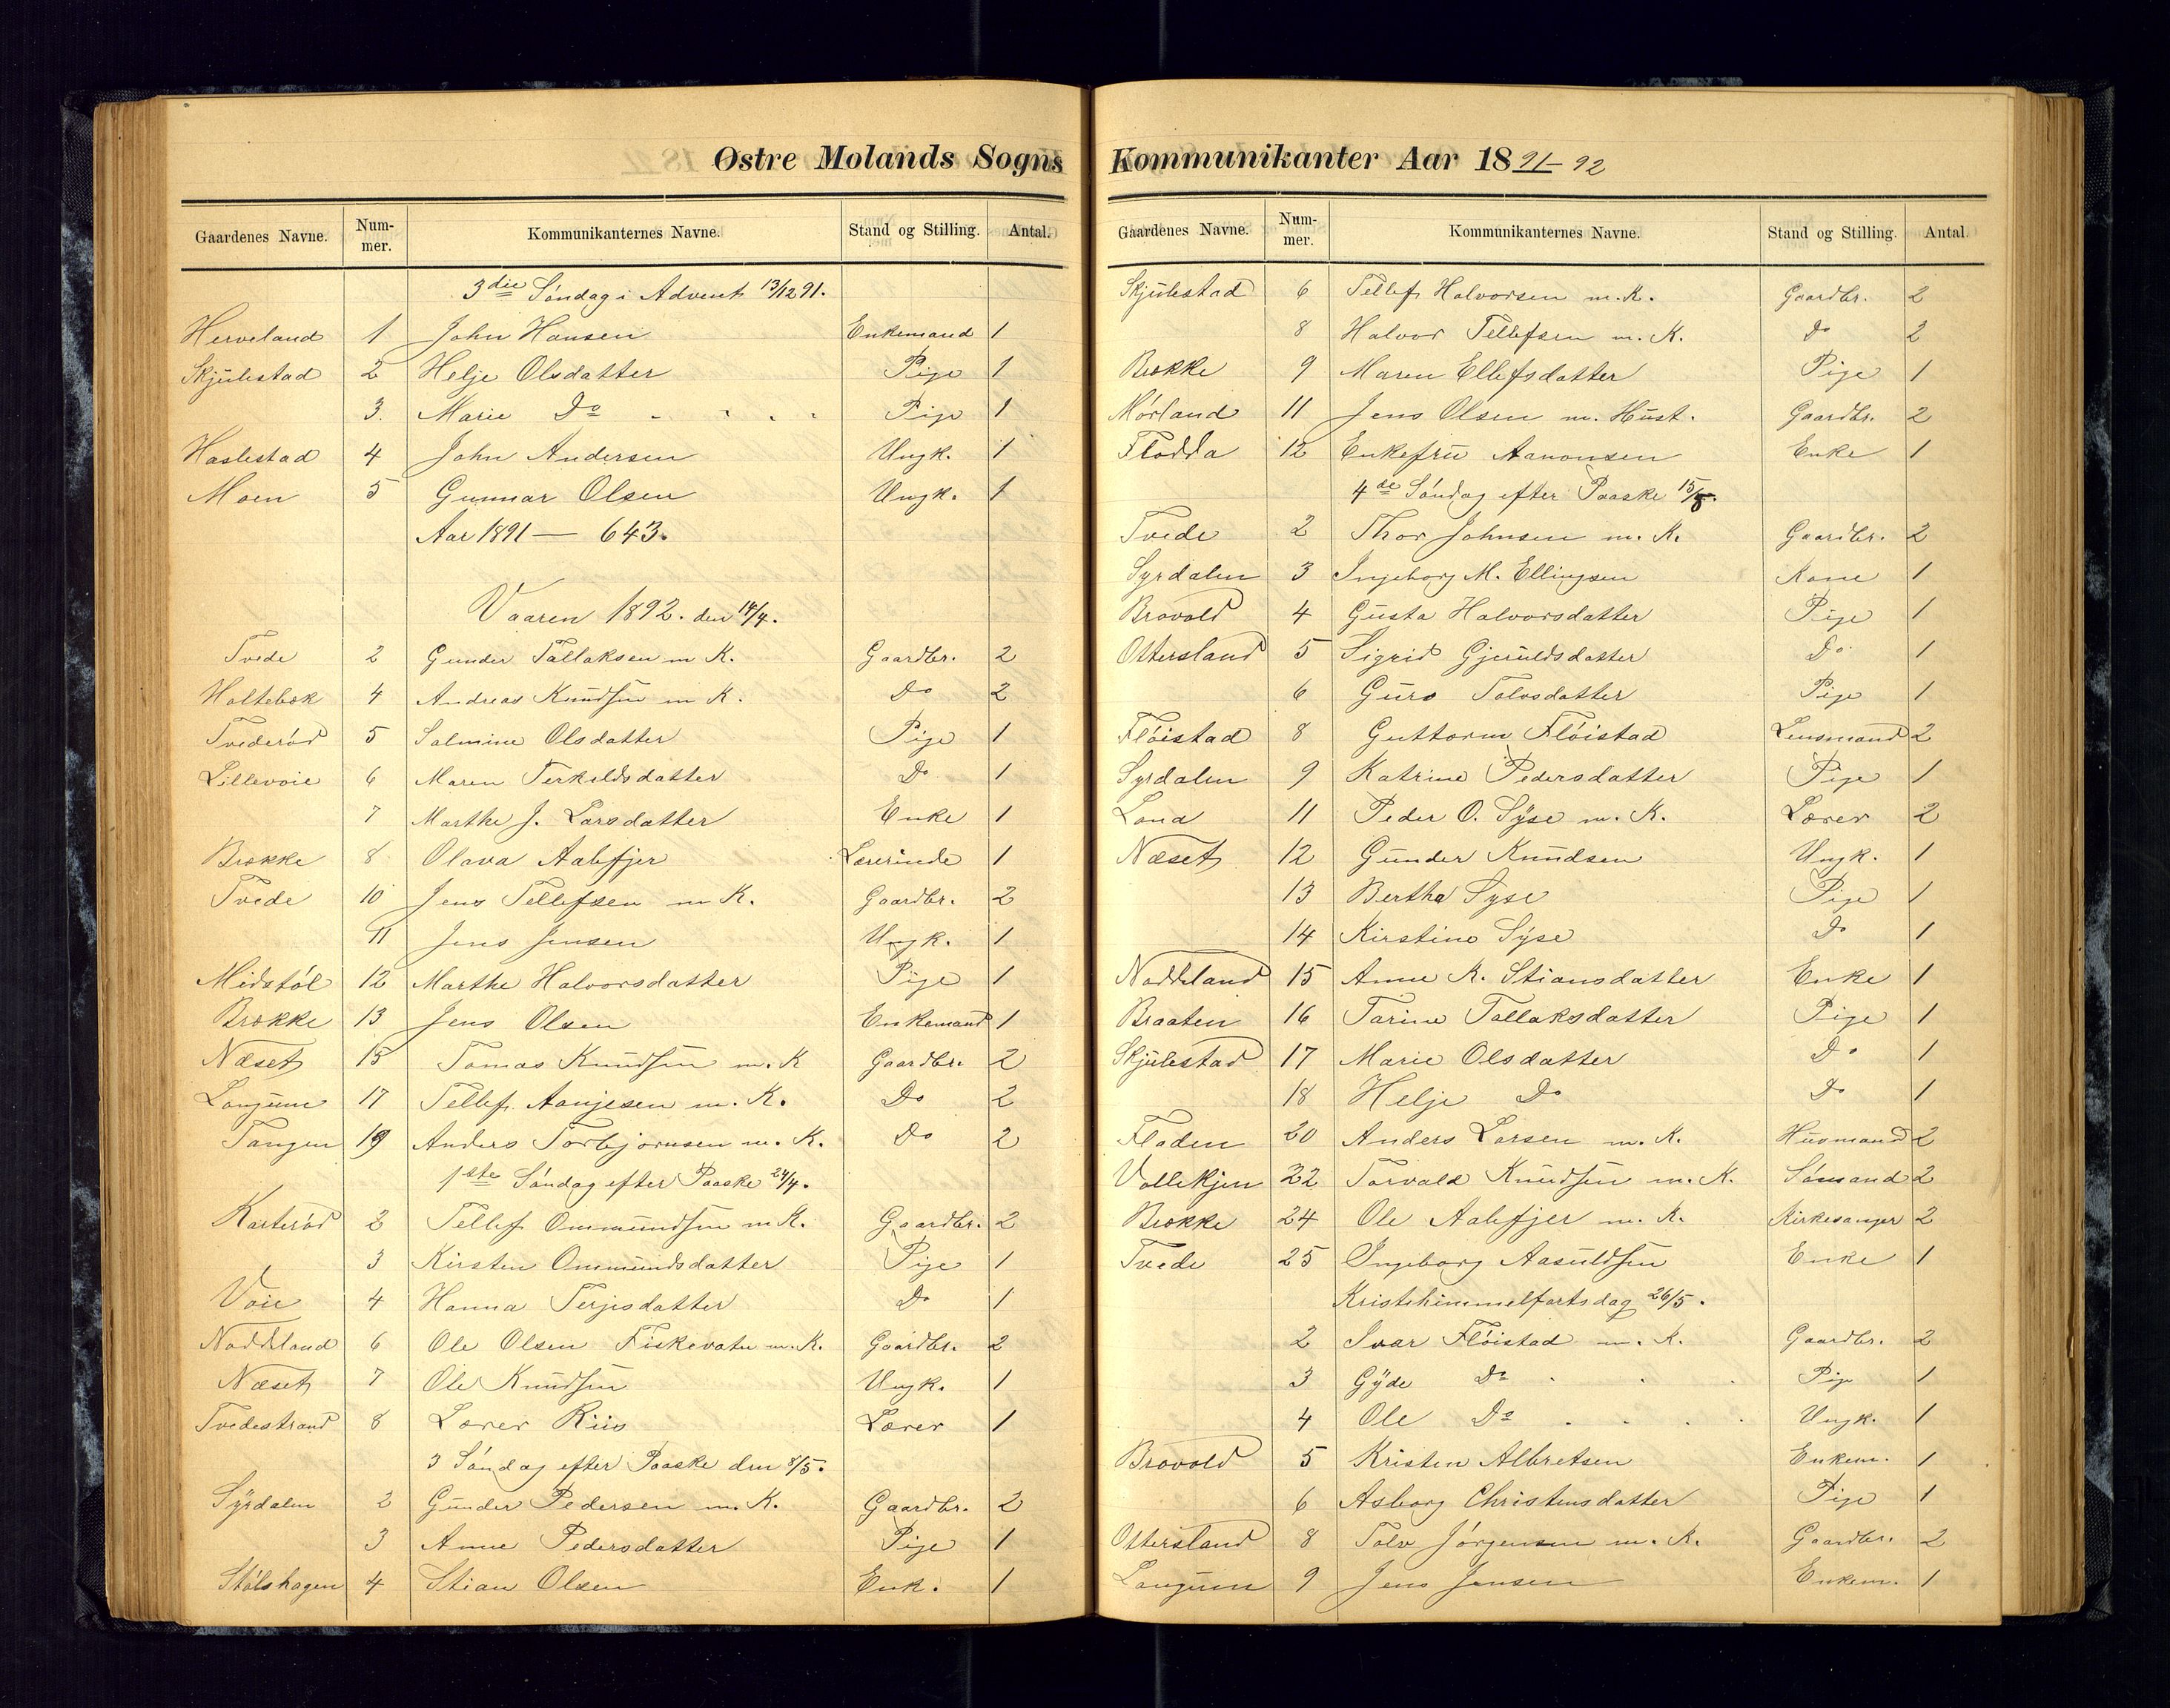 Østre Molands Sogns
Gaardenes Navne. Num-mer. Kommunikanternes Navne. Stand og Stilling. Antal.
3die Søndag i Advent 13/12 91.
Herveland 1 John Hansen Enkemand 1
Skjulestad 2 Helje Olsdatter Pige 1
3. Marie Do Pige 1
Haslestad 4 John Andersen Ungk. 1
Moen 5 Gunnar Olsen Ungk. 1
Aar 1891 — 643.
Vaaren 1892. den 14/4.
Tvede 2 Gunder Tallaksen m K. Gaardbr. 2
Holtebek 4 Andreas Knudsen m K. Do 2
Tvederød 5 Salmine Olsdatter Pige 1
Lillevoie 6 Maren Terkeldsdatter Do 1
7 Marthe J. Larsdatter Enke 1
Brække 8 Olava Aalefjer Lærerinde 1
Tvede 10 Jens Tellefsen m K. Gaardbr. 2
11 Jens Jensen Ungk. 1
Midstøl 12 Marthe Halvorsdatter Pige 1
Brække 13 Jens Olsen Enkemand 1
Næset 15 Tomas Knudsen m. K Gaardbr. 2
Langum 17 Tellef Aanjesen m. K. Do 2
Tangen 19 Anders Torbjørnsen m. K. Do 2
1ste Søndag efter Paaske 24/4.
Karterød 2 Tellef Ommundsen m K. Gaardbr. 2
3 Kirsten Ommundsdatter Pige 1
Voie 4 Hanna Terjesdatter Do 1
Naddeland 6 Ole Olsen Fiskevatn m. K. Gaardbr. 2
Næset 7 Ole Knudsen Ungk. 1
Tvedestrand 8 Lærer Riis Lærer 1
3 Søndag efter Paaske den 8/5.
Syrdalen 2 Gunder Pedersen m. K. Gaardbr. 2
3 Anne Pedersdatter Pige 1
Stølshagen 4 Stian Olsen Enk. 1
Kommunikanter Aar 1891-92
Gaardenes Navne. Num-mer. Kommunikanternes Navne. Stand og Stilling. Antal.
Skjulestad 6 Tellef Halvorsen m. K. Gaardbr. 2
8 Halvor Tellefsen m. K. Do 2
Brække 9 Maren Ellefsdatter Pige 1
Mørland 11 Jens Olsen m. Hust. Gaardbr. 2
Flodda 12 Enkefru Aanonsen Enke 1
4de Søndag efter Paaske 15/5.
Tvede 2 Thor Johnsen m. K. Gaardbr. 2
Syrdalen 3 Ingeborg M. Ellingsen Kone 1
Brovold 4 Gusta Halvorsdatter Pige 1
Ottersland 5 Sigrid Gjeruldsdatter Do 1
6 Guro Tolvsdatter Pige 1
Fløistad 8 Guttorm Fløistad Lensmand 2
Syrdalen 9 Katrine Pedersdatter Pige 1
Lona 11 Peder O. Syse m. K. Lærer 2
Næset 12 Gunder Knudsen Ungk. 1
13 Bertha Syse Pige 1
14 Kirstine Syse Do 1
Naddeland 15 Anne K. Stiansdatter Enke 1
Braaten 16 Tarine Tallaksdatter Pige 1
Skjulestad 17 Marie Olsdatter Do 1
18 Helje Do Do 1
Floden 20 Anders Larsen m. K. Husmand 2
Vollekjen 22 Torvald Knudsen m. K. Sømand 2
Brække 24 Ole Aalefjer m. K. Kirkesanger 2
Tvede 25 Ingeborg Aasuldsen Enke 1
Kristihimmelfartsdag 26/5.
2 Ivar Fløistad m. K. Gaardbr. 2
3 Gyde Do Pige 1
4 Ole Do Ungk. 1
Brovold 5 Kristen Albretsen Enkem. 1
6 Asborg Christensdatter Pige 1
Ottersland 8 Tolv Jørgensen m. K. Gaardbr. 2
Langum 9 Jens Jensen Enkem. 1